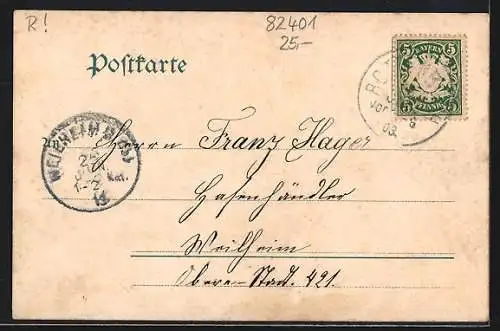 R!
82401
25,-
Postkarte
5 BAYERN 5
5 PFENNIG 5
WEILHEIM
Herrn Franz Hager
Hasenhändler
Weilheim
Obere Stadt. 421.